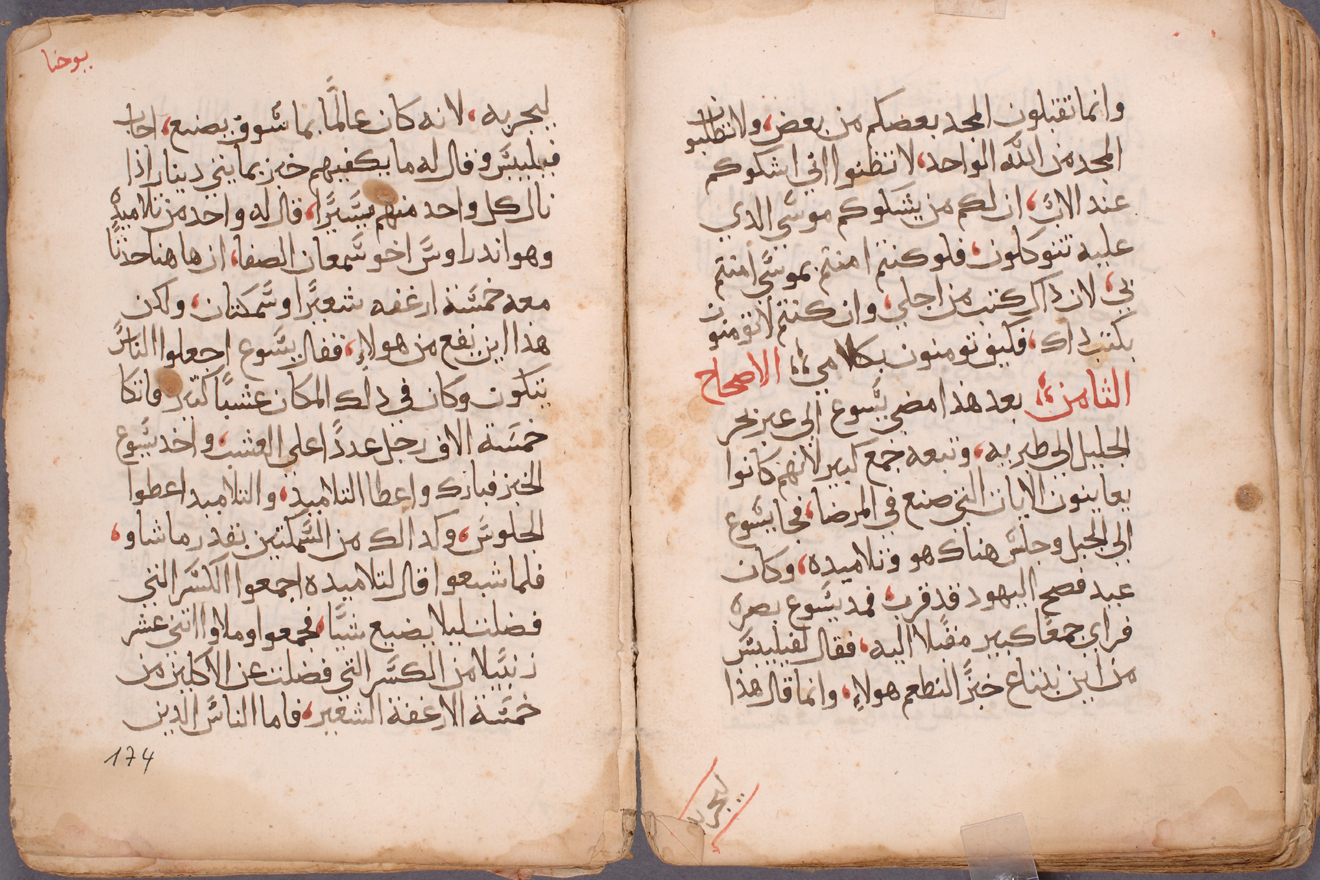 وانما تقبلون المجد بعضكم من بعض، ولا تطلبون
المجد من الله الواحد، لا تظنوا اني اشكوكم
عند الابّ، ان لكم من يشكوكم موسى الدي
عليه تتوكلون، فلو كنتم امنتم بموسى امنتم
بي، لان داك كتب من اجلي، وان كنتم لا تومنون
بكتب داك، فكيف تومنون بكلامي؛ الاصحاح
الثامن؛ بعد هذا مضى يسوع الى عبر بحر
الجليل الى طبريه، وتبعه جمع كبير لانهم كانوا
يعاينون الايات التي صنع في المرضا، فجا يسوع
الى الجبل وجلس هناك هو وتلاميده، وكان
عيد فصح اليهود قد قرب، فمد يسوع بصره
فراى جمعًا كبير مقبلا اليه، فقال لفيلبس
من اين نبتاع خبزًا لنطعم هولاء، وانما قال هذا
ليجربه
يوحنا
ليجربه، لانه كان عالمًا بما سوف يصنع، اجاب
فيلبس وقال له ما يكفيهم خبز بمايتي دينار اذا
نال كل واحد منهم يسيرًا، قال له واحد من تلاميده
وهو اندراوس اخو سمعان الصفا، ان هاهنا حدثا
معه خمسة ارغفه شعيرًا وسمكتان، ولكن
هذا اين يقع من هولاء، فقال يسوع اجعلوا الناس
يتكون وكان في دلك المكان عشبًا كتير فاتكا
خمسة الاف رجل عددًا على العشب، واخد يسوع
الخبز فبارك واعطا التلاميد، والتلاميد اعطوا
الجلوس، وكدالك من السمكتين بقدر ما شاو،
فلما شبعوا قال لتلاميده اجمعوا الكسر التي
فضلت ليلا يضيع شيًا، فجمعوا وملاوا اتني عشر
زنبيلا من الكسر التي فضلت عن الاكلين من
خمسة الارغفة الشعير، فاما الناس الدين
174